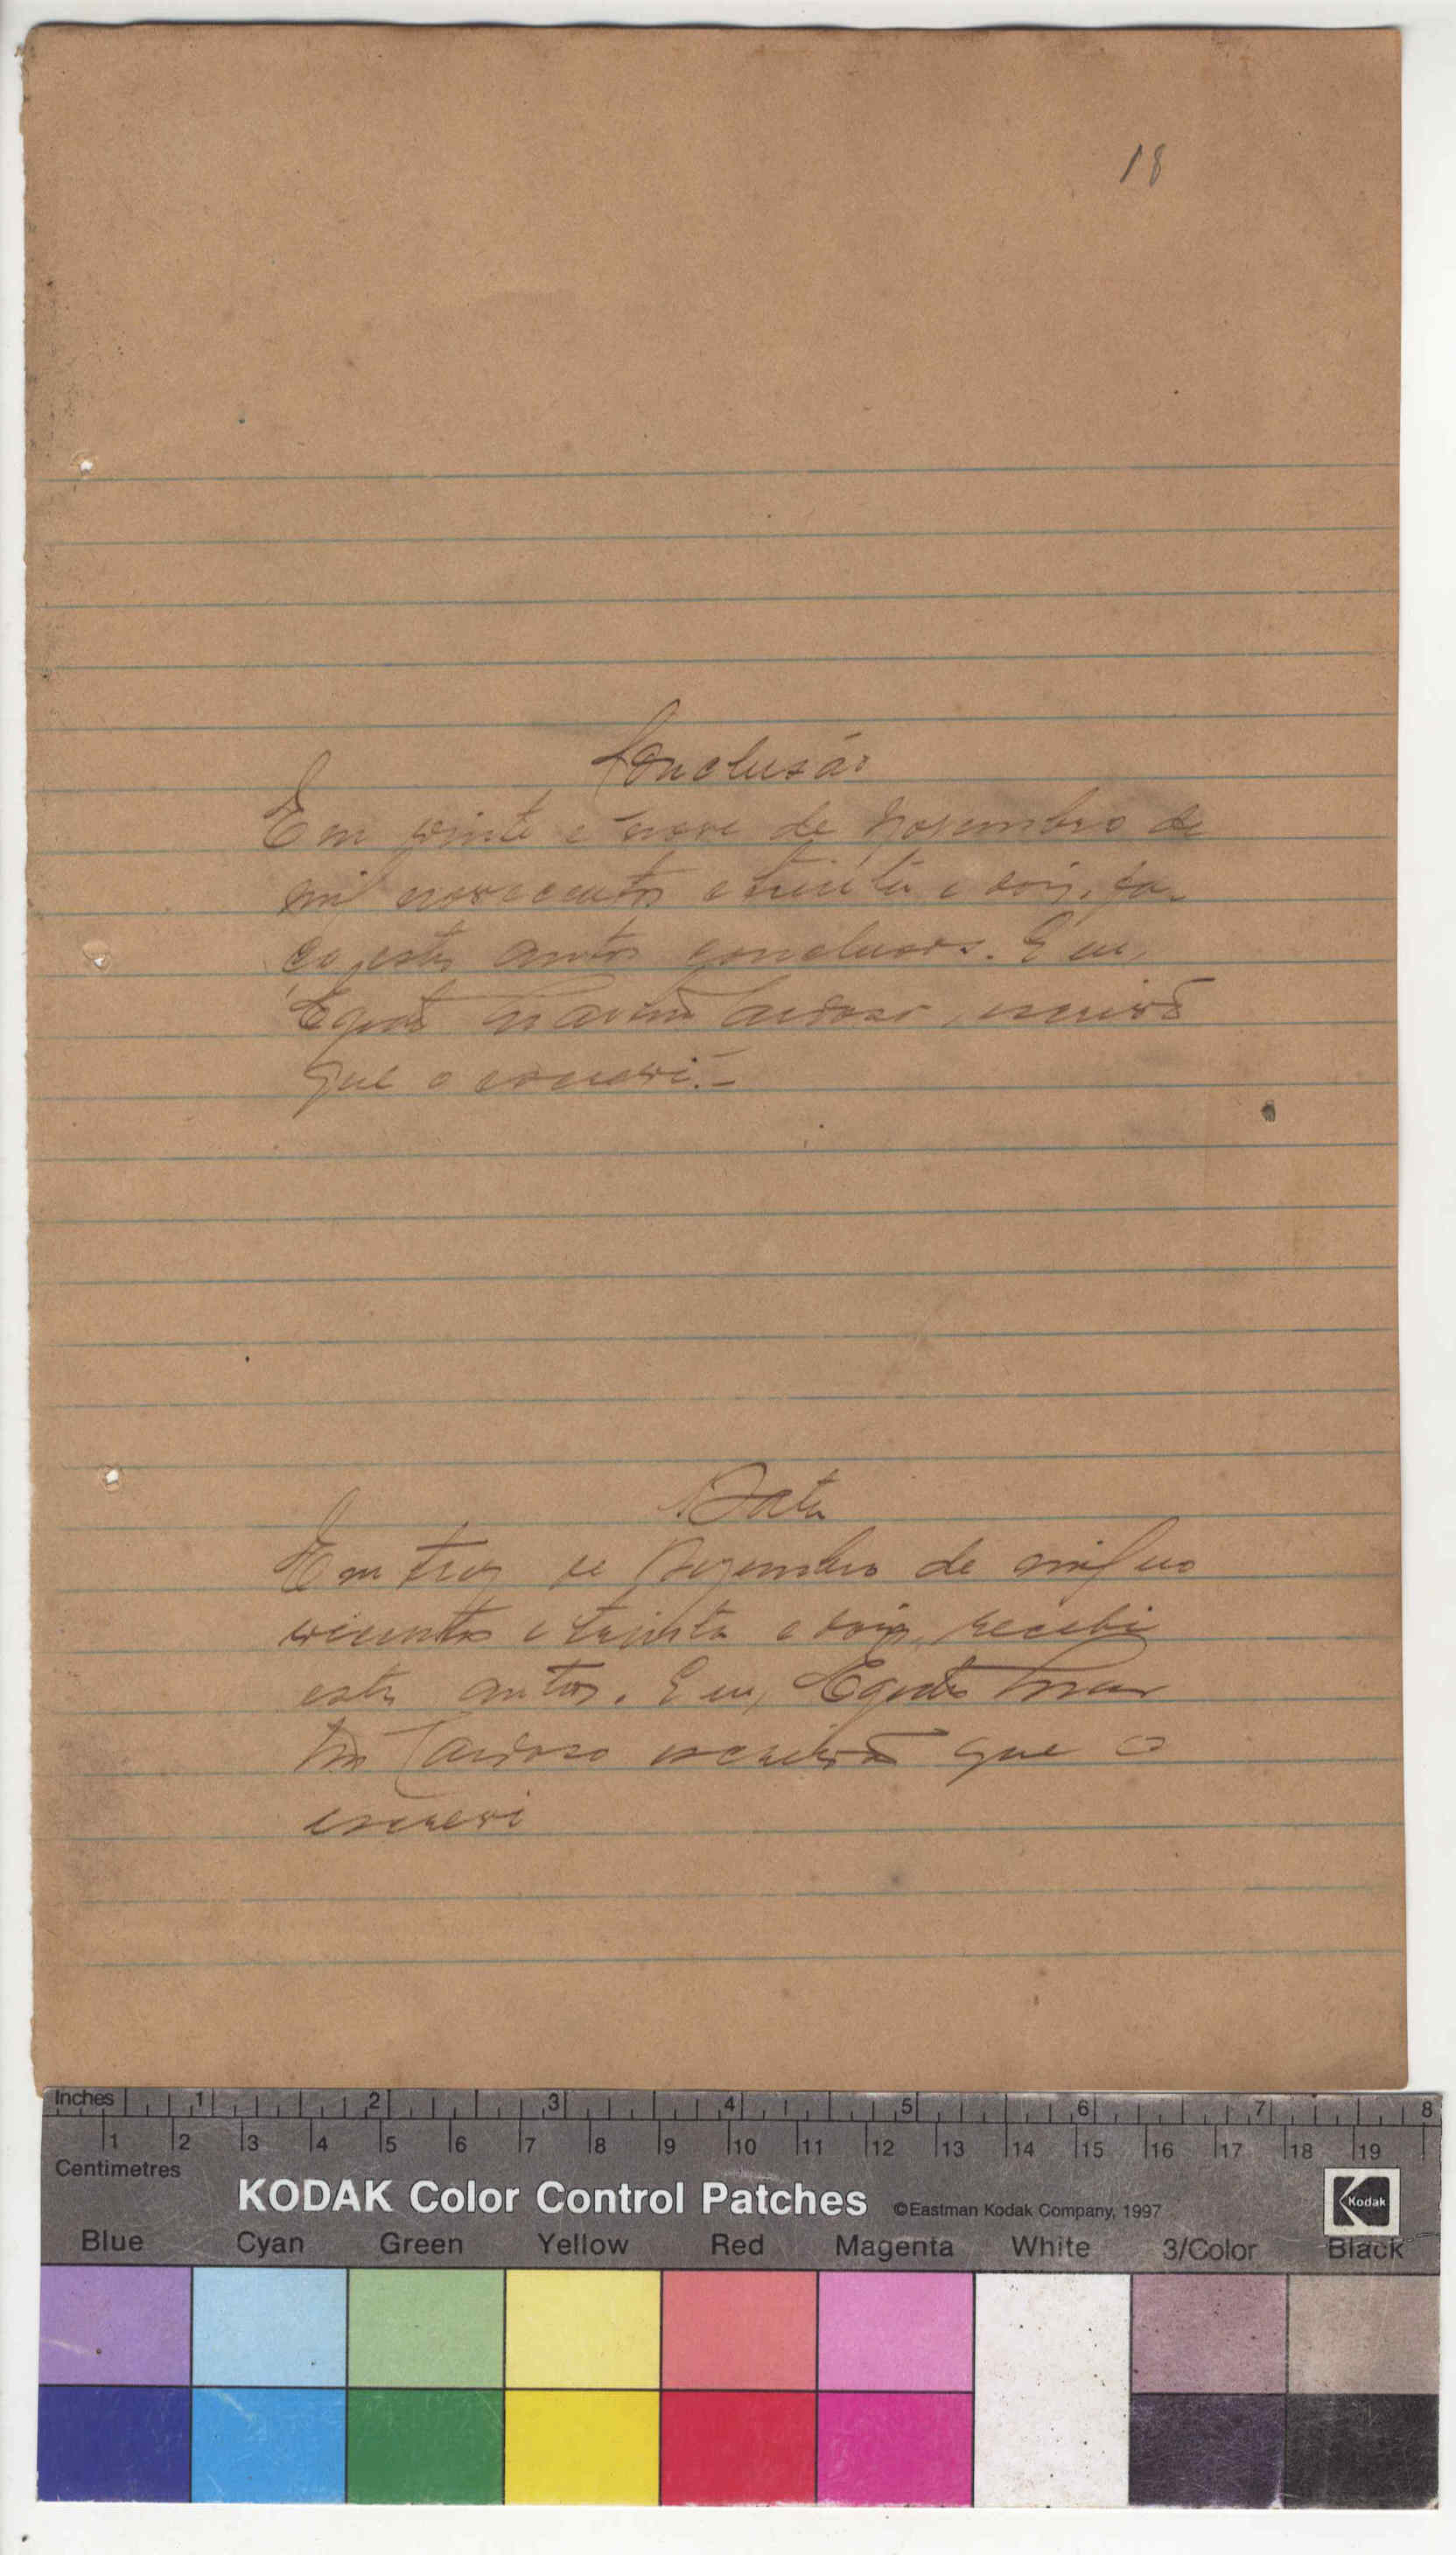 18
Conclusão
Em vinte e nove de Novembro de
mil novecentos e trinta e dois, fa-
ço estes autos conclusos. E eu,
Martins Cardoso, escrivão
que o escrevi.-
Data
Em trez de Dezembro de mil no
vecentos e trinta e dois, recebi
estes autos. E eu, Mar
tins Cardoso escrivão que o
escrevi
Inches 1 2 3 4 5 6 7 8
1 2 3 4 5 6 7 8 9 10 11 12 13 14 15 16 17 18 19
Centimetres
KODAK Color Control Patches ©Eastman Kodak Company, 1997 Kodak
Blue Cyan Green Yellow Red Magenta White 3/Color Black